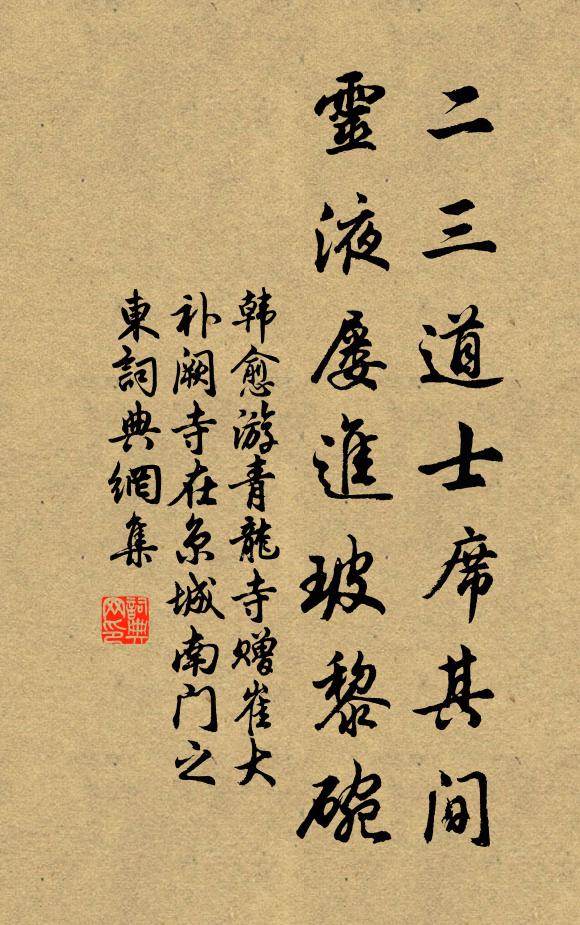 二三道士席其间
靈液屡進玻黎碗
韩愈游青龍寺赠崔大
补阙寺在京城南门之
東詞典網集
詞典
网印